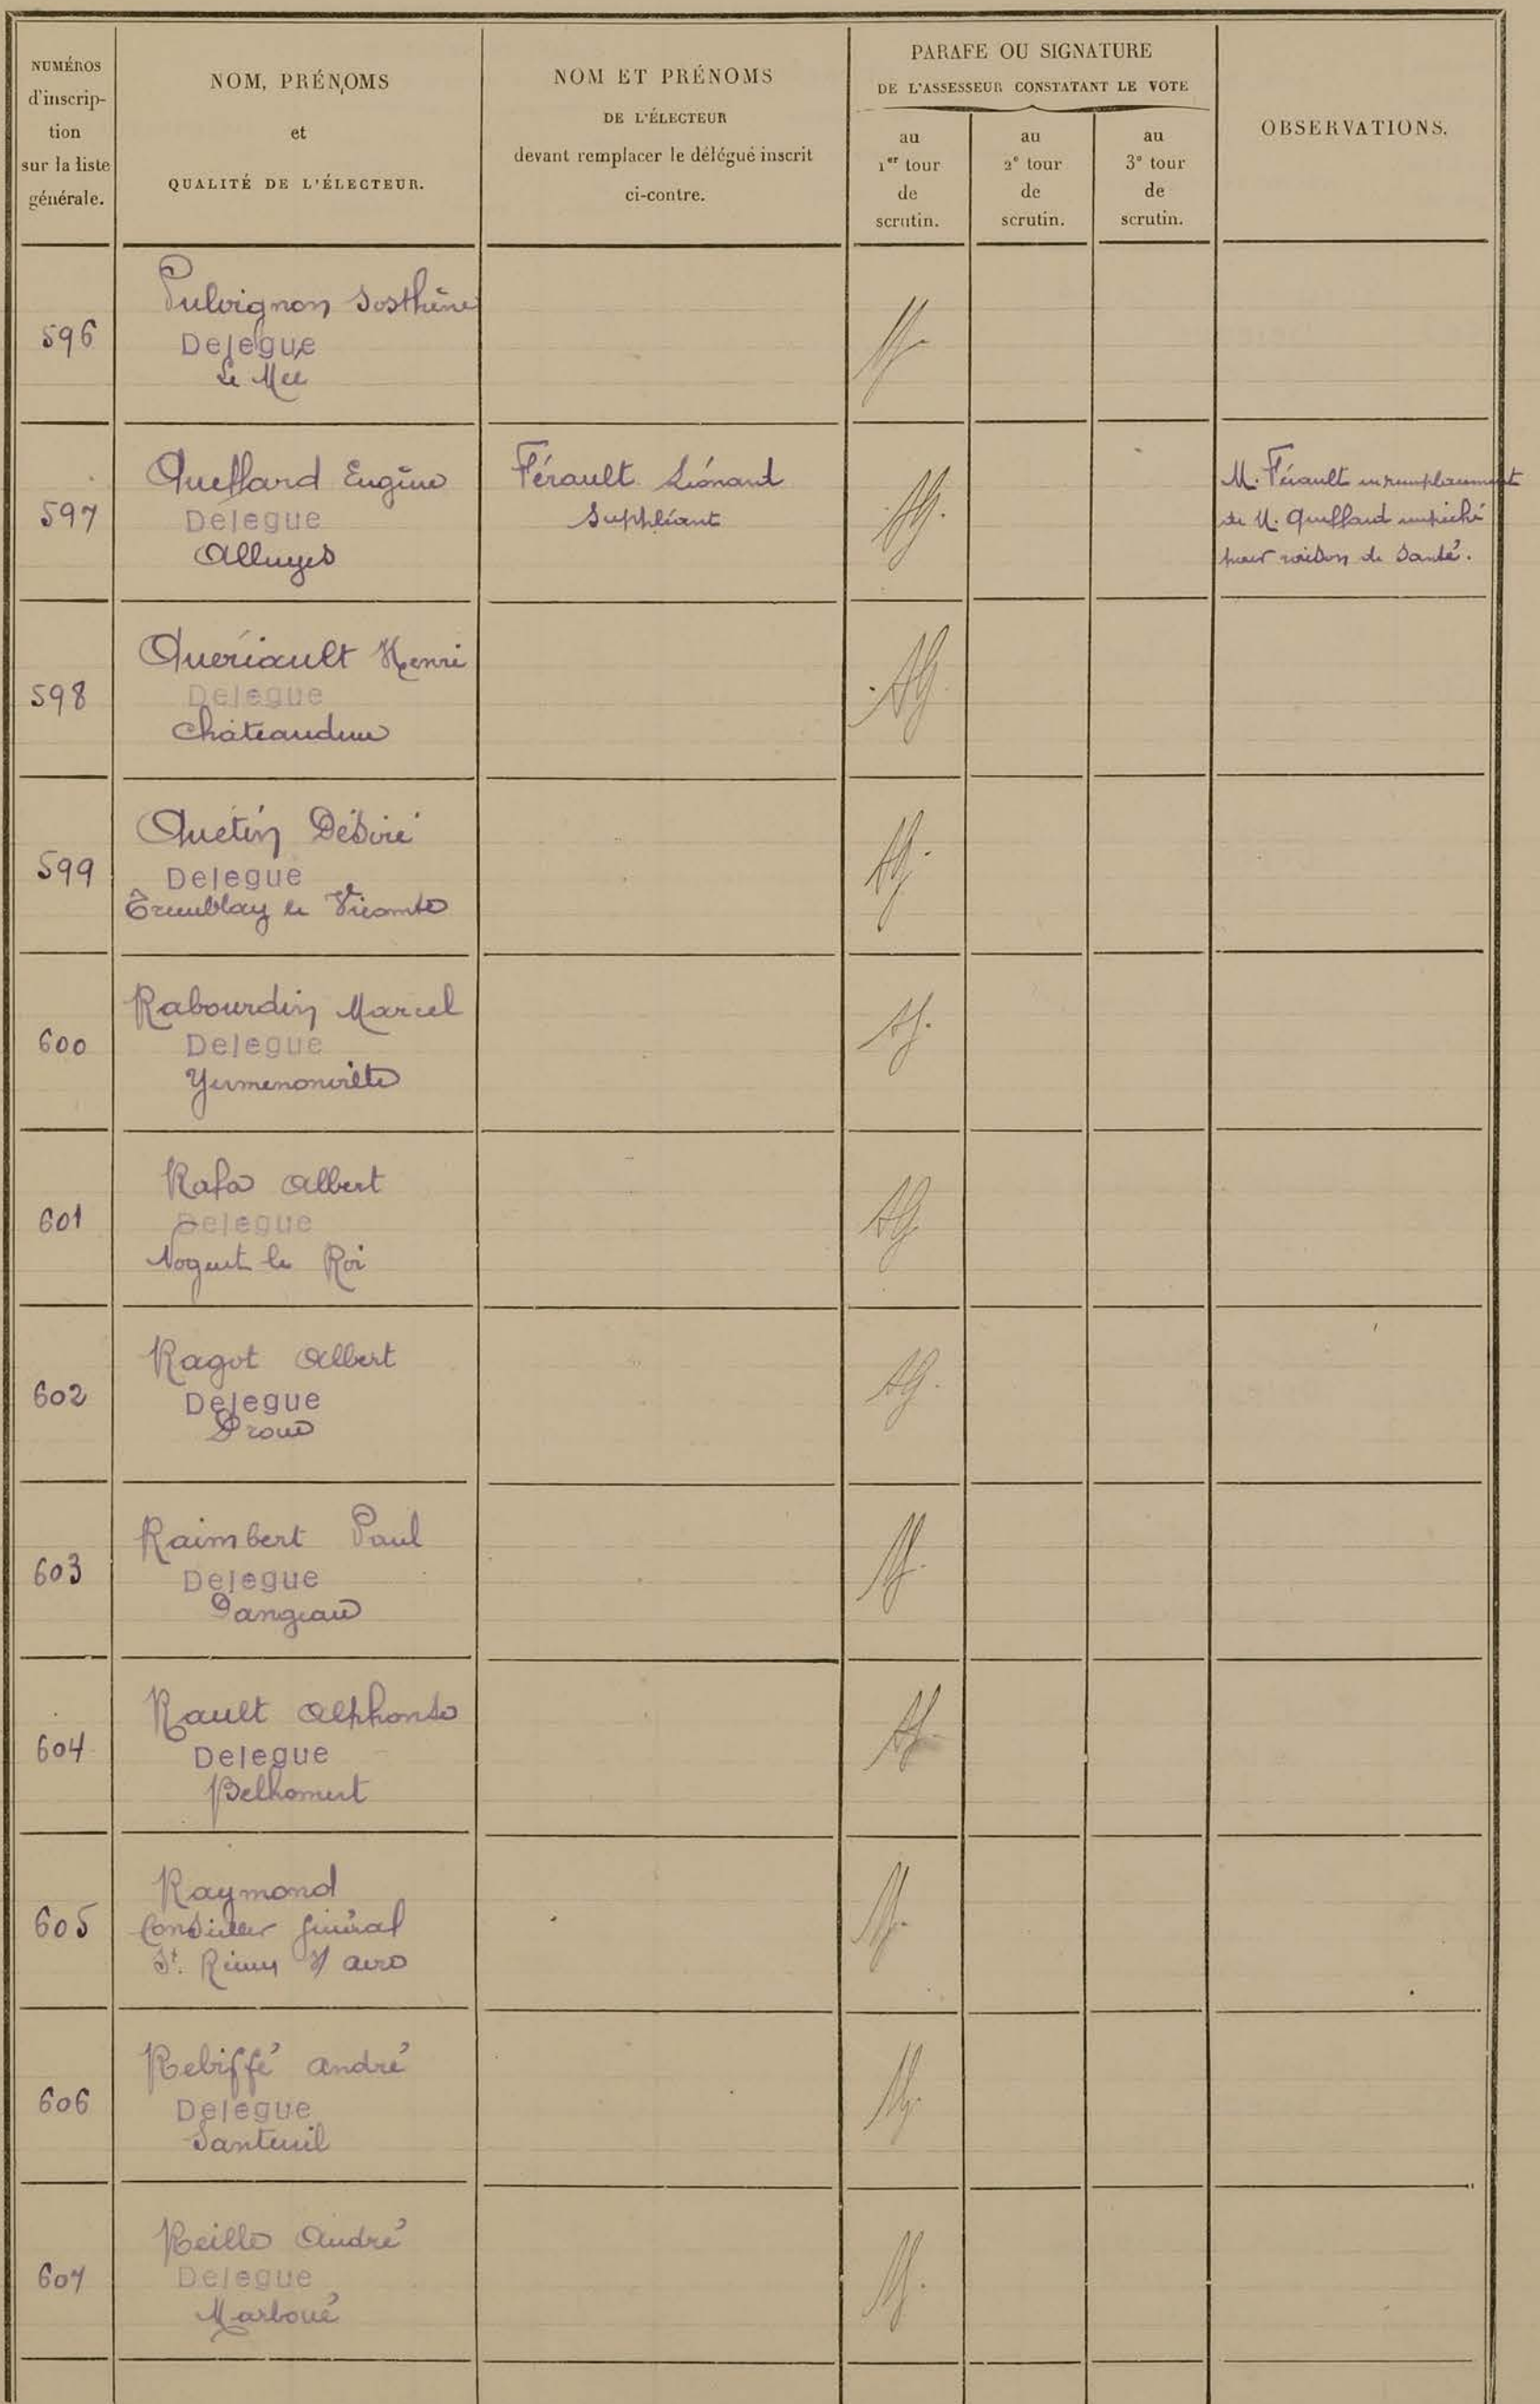 NUMÉROS
d'inscrip-
tion
sur la liste
générale.
NOM, PRÉNOMS
et
QUALITÉ DE L'ÉLECTEUR.
NOM ET PRÉNOMS
DE L'ÉLECTEUR
devant remplacer le délégué inscrit
ci-contre.
PARAFE OU SIGNATURE
DE L'ASSESSEUR CONSTATANT LE VOTE
au
1er tour
de
scrutin.
au
2e tour
de
scrutin.
au
3e tour
de
scrutin.
OBSERVATIONS.
596
Pulvignon Sosthène
Delegue
Le Mée
597
Queffard Eugène
Delegue
Alluyes
Férault Léonard
Suppléant
M. Férault en remplacement
de M. Queffard empêché
pour raison de Santé.
598
Quériault Henri
Delegue
Châteaudun
599
Quetin Désiré
Delegue
Tremblay le Vicomte
600
Rabourdin Marcel
Delegue
Yermenonville
601
Rafa Albert
Delegue
Nogent le Roi
602
Ragot Albert
Delegue
Droue
603
Raimbert Paul
Delegue
Dangeau
604
Rault Alphonse
Delegue
Belhomert
605
Raymond
Conseiller Général
St. Rémy s/ avre
606
Rebiffé André
Delegue
Santeuil
607
Reille André
Delegue
Marboué